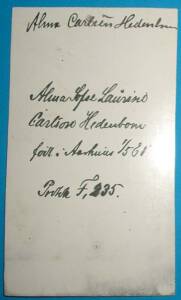 Alma Carlsen Hedenbom
Alma Sofie Laurine
Carlson Hedenbom
född i Aarhuus 1/5 61
F, 235.